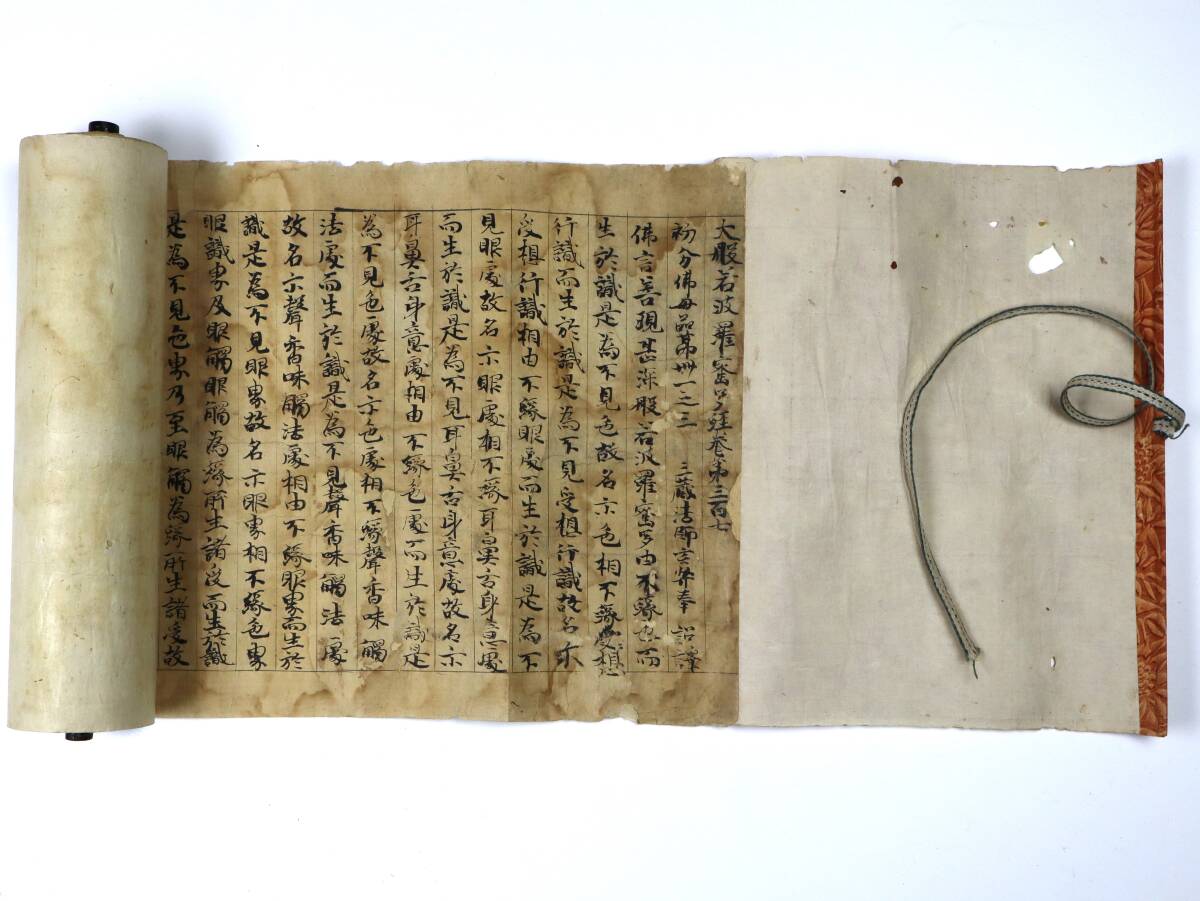 大般若波羅蜜多經卷第三百七
初分佛母品第卌一之三 三藏法師玄奘奉 詔譯
佛言善現甚深般若波羅蜜多由不緣色而
生於識是為不見色故名示色相不緣受想
行識而生於識是為不見受想行識故名示
受想行識相由不緣眼處而生於識是為不
見眼處故名示眼處相不緣耳鼻舌身意處
而生於識是為不見耳鼻舌身意處故名示
耳鼻舌身意處相由不緣色處而生於識是
為不見色處故名示色處相不緣聲香味觸
法處而生於識是為不見聲香味觸法處
故名示聲香味觸法處相由不緣眼界而生於
識是為不見眼界故名示眼界相不緣色界
眼識界及眼觸眼觸為緣所生諸受而生於識
是為不見色界乃至眼觸為緣所生諸受故